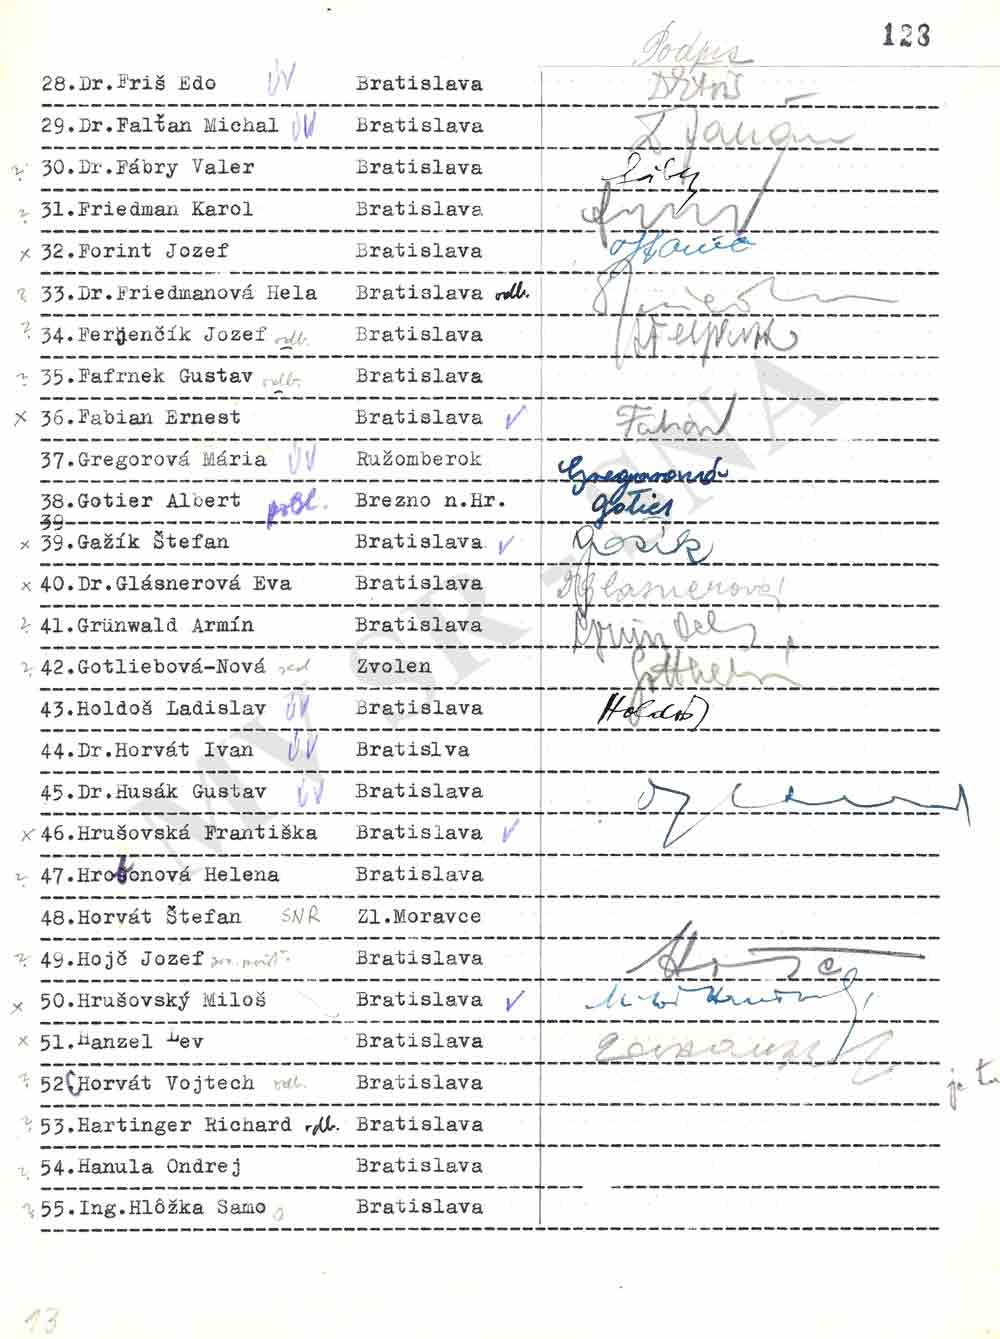 123
Podpis
28.Dr.Friš Edo ÚV Bratislava
29.Dr.Falťan Michal ÚV Bratislava
? 30.Dr.Fábry Valer Bratislava
? 31.Friedman Karol Bratislava
x 32.Forint Jozef Bratislava
? 33.Dr.Friedmanová Hela Bratislava odb.
? 34.Ferjenčík Jozef odb. Bratislava
? 35.Fafrnek Gustav odb. Bratislava
x 36.Fabian Ernest Bratislava ✓ Fabian
37.Gregorová Mária ÚV Ružomberok Gregorová
38.Gotier Albert Brezno n.Hr. Gotier
39
x 39.Gažík Štefan Bratislava ✓ Gažík
x 40.Dr.Glásnerová Eva Bratislava Dr Glasnerová
? 41.Grünwald Armín Bratislava
? 42.Gotliebová-Nová Zvolen
43.Holdoš Ladislav ÚV Bratislava Holdoš
44.Dr.Horvát Ivan ÚV Bratislva
45.Dr.Husák Gustav ÚV Bratislava
x 46.Hrušovská Františka Bratislava ✓
? 47.Hrobónová Helena Bratislava
48.Horvát Štefan SNR Zl.Moravce
? 49.Hojč Jozef Bratislava
x 50.Hrušovský Miloš Bratislava ✓
x 51.Hanzel Lev Bratislava
? 52.Horvát Vojtech odb. Bratislava
je tu
? 53.Hartinger Richard odb. Bratislava
? 54.Hanula Ondrej Bratislava
? 55.Ing.Hlôžka Samo Bratislava
13
MV SR - SNA